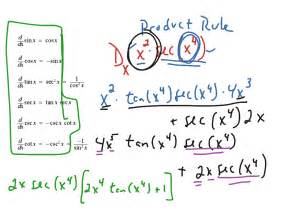 Product Rule
d/dx sin x = cos x
d/dx cos x = -sin x
d/dx tan x = sec² x = 1/cos² x
d/dx sec x = tan x sec x
d/dx csc x = -csc x cot x
d/dx cot x = -csc² x = -1/sin² x
Dₓ x² · sec(x⁴)
x² · tan(x⁴) sec(x⁴) · 4x³
+ sec(x⁴) 2x
4x⁵ tan(x⁴) sec(x⁴)
+ 2x sec(x⁴)
2x sec(x⁴) [2x⁴ tan(x⁴) + 1]